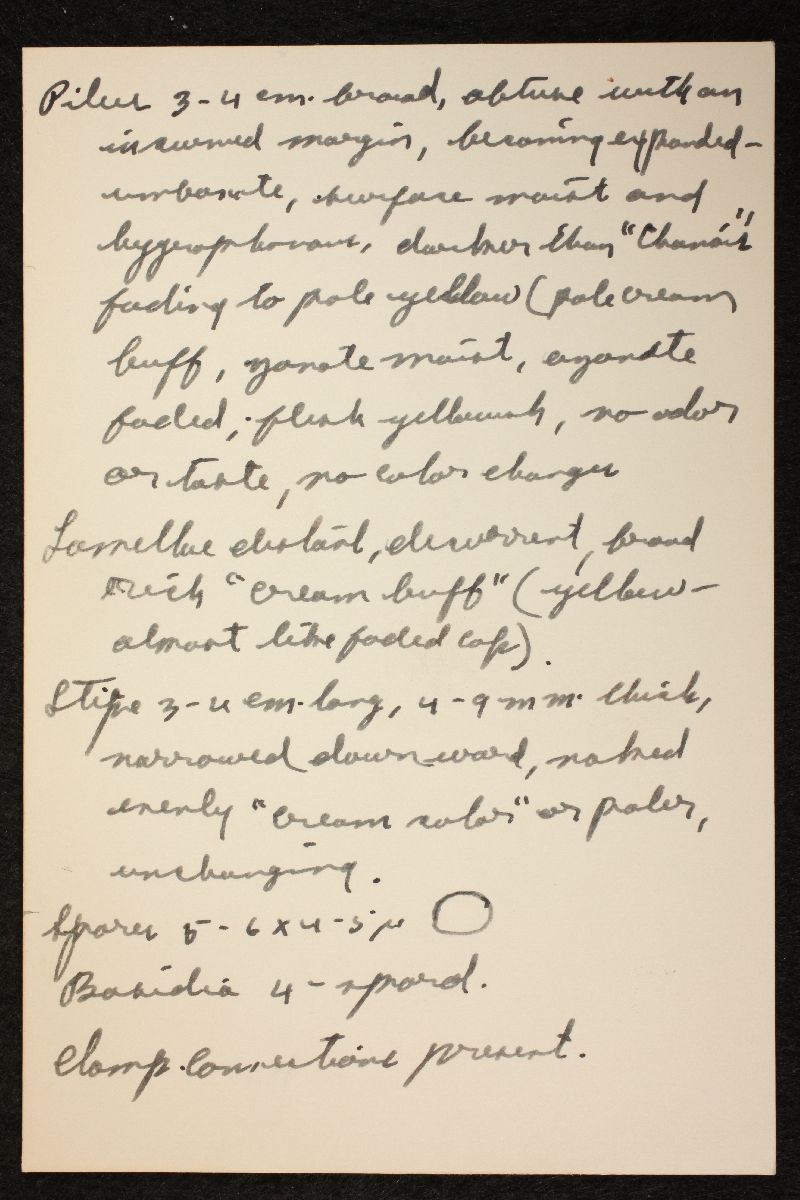 Pileus 3-4 cm. broad, obtuse with an
incurved margin, becoming expanded-
umbonate, surface moist and
hygrophanous, darker than "Chamois"
fading to pale yellow (pale cream
buff, zonate moist, azonate
faded, flesh yellowish, no odor
or taste, no color changes
Lamellae distant, decurrent, broad
thick "cream buff" (yellow-
almost like faded cap).
Stipe 3-4 cm. long, 4-9 mm. thick,
narrowed downward, naked
evenly "cream color" or paler,
unchanging.
Spores 5-6 x 4-5 µ
Basidia 4-spored.
Clamp connections present.